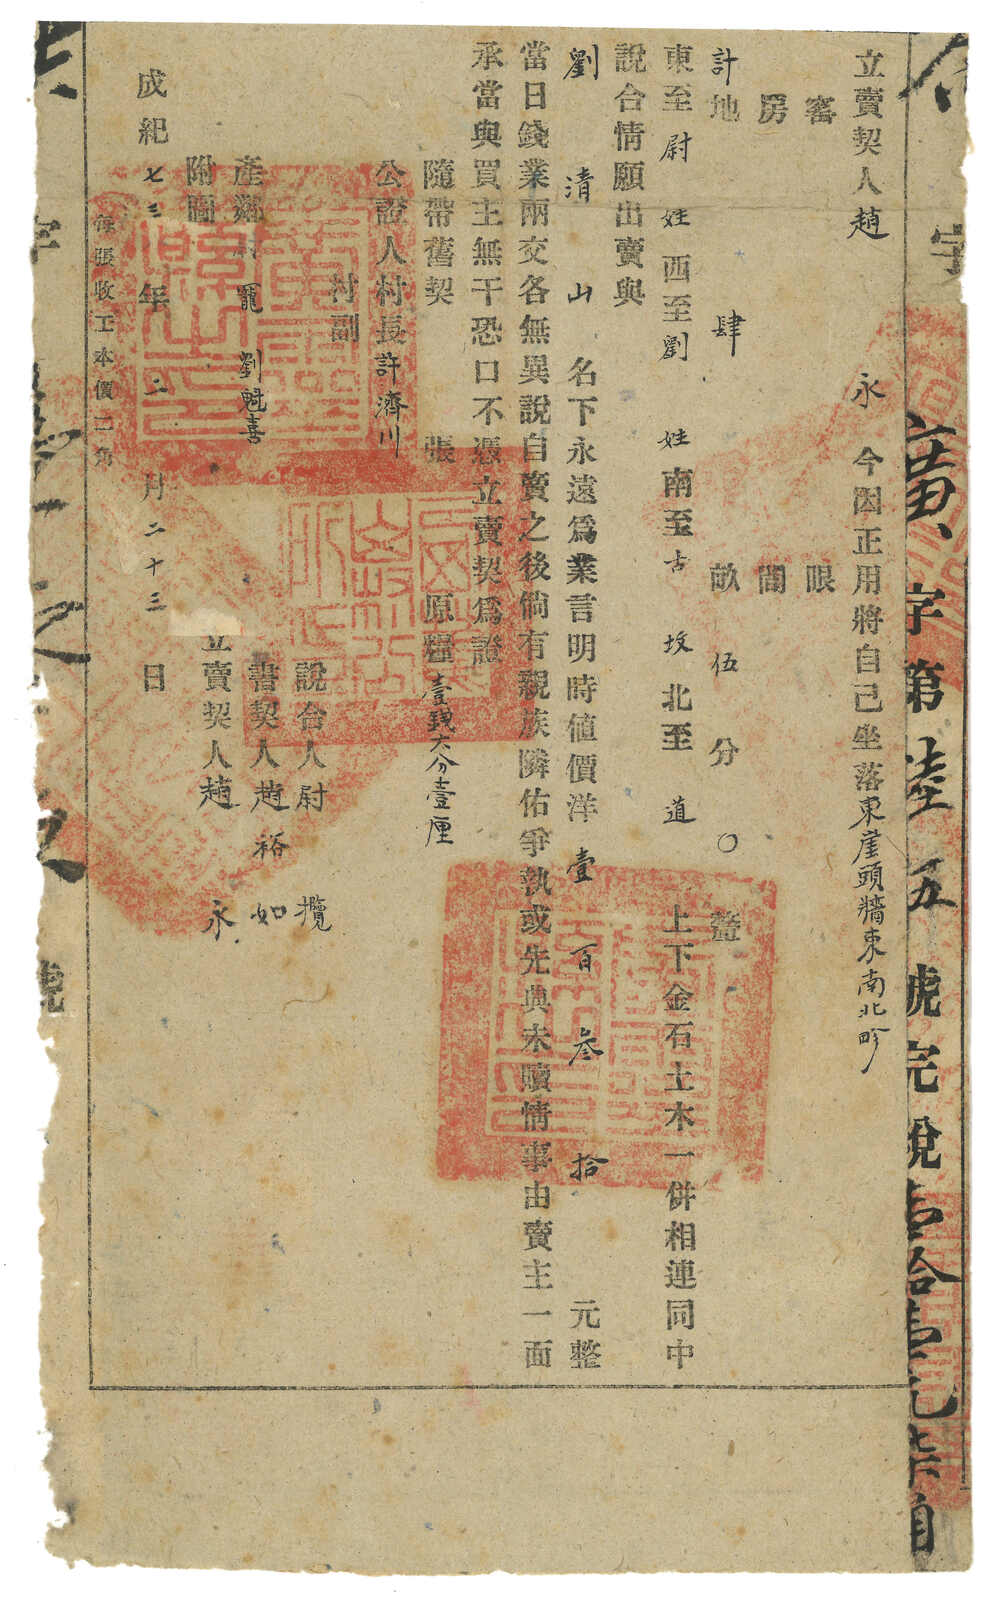 廣字第陸五號完稅壹拾壹元柒角
立賣契人趙永今因正用將自己坐落東崖頭墻東南北畛
窰眼
房間
計地肆畝伍分〇釐
東至尉姓西至劉姓南至古坟北至道上下金石土木一併相連同中
說合情願出賣與
劉清山名下永遠爲業言明時值價洋壹百叁拾元整
當日錢業兩交各無異說自賣之後倘有親族隣佑爭執或先典未贖情事由賣主一面
承當與買主無干恐口不憑立賣契爲證
隨帶舊契張原糧壹錢六分壹厘
公證人村長許濟川
村副
說合人尉攬
產鄰劉魁喜
書契人趙裕如
附圖
立賣契人趙永
成紀七三年二月二十三日
每張收工本價二角
號